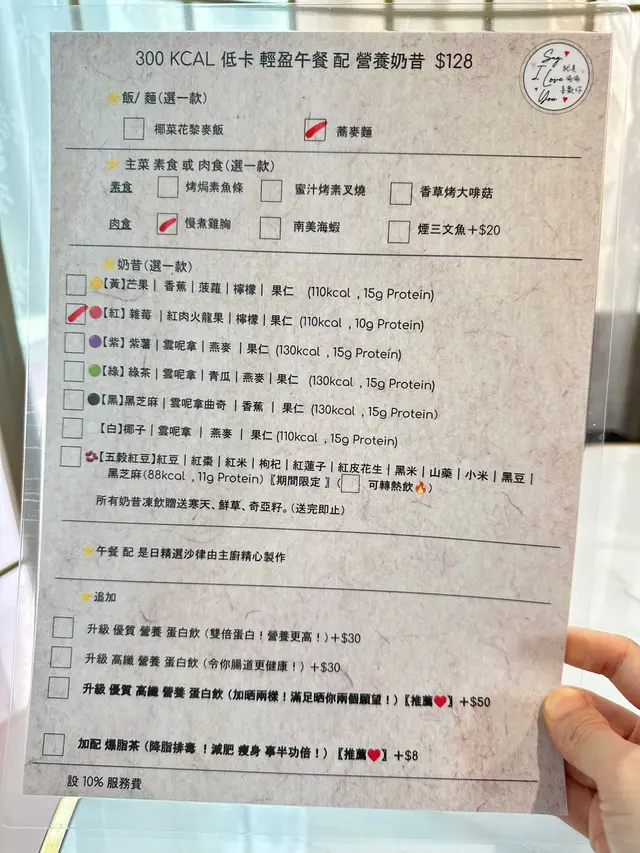 300 KCAL 低卡 輕盈午餐 配 營養奶昔 $128
Say I Love You
就是
喃喃
喜歡你
飯/ 麵(選一款)
椰菜花黎麥飯
蕎麥麵
主菜 素食 或 肉食(選一款)
素食
烤焗素魚條
蜜汁烤素叉燒
香草烤大啡菇
肉食
慢煮雞胸
南美海蝦
煙三文魚+$20
奶昔(選一款)
【黃】芒果 | 香蕉 | 菠蘿 | 檸檬 | 果仁 (110kcal , 15g Protein)
【紅】雜莓 | 紅肉火龍果 | 檸檬 | 果仁 (110kcal , 10g Protein)
【紫】紫薯 | 雲呢拿 | 燕麥 | 果仁 (130kcal , 15g Protein)
【綠】綠茶 | 雲呢拿 | 青瓜 | 燕麥 | 果仁 (130kcal , 15g Protein)
【黑】黑芝麻 | 雲呢拿曲奇 | 香蕉 | 果仁 (130kcal , 15g Protein)
【白】椰子 | 雲呢拿 | 燕麥 | 果仁 (110kcal , 15g Protein)
【五穀紅豆】紅豆 | 紅棗 | 紅米 | 枸杞 | 紅蓮子 | 紅皮花生 | 黑米 | 山藥 | 小米 | 黑豆 |
黑芝麻(88kcal , 11g Protein)〖期間限定 〗( 可轉熱飲🔥)
所有奶昔凍飲贈送寒天、鮮草、奇亞籽。(送完即止)
午餐 配 是日精選沙律由主廚精心製作
追加
升級 優質 營養 蛋白飲 (雙倍蛋白！營養更高！)+$30
升級 高纖 營養 蛋白飲 (令你腸道更健康！)+$30
升級 優質 高纖 營養 蛋白飲 (加晒兩樣！滿足晒你兩個願望！)【推薦❤️】+$50
加配 爆脂茶 (降脂排毒 ！減肥 瘦身 事半功倍！)【推薦❤️】+$8
設 10% 服務費